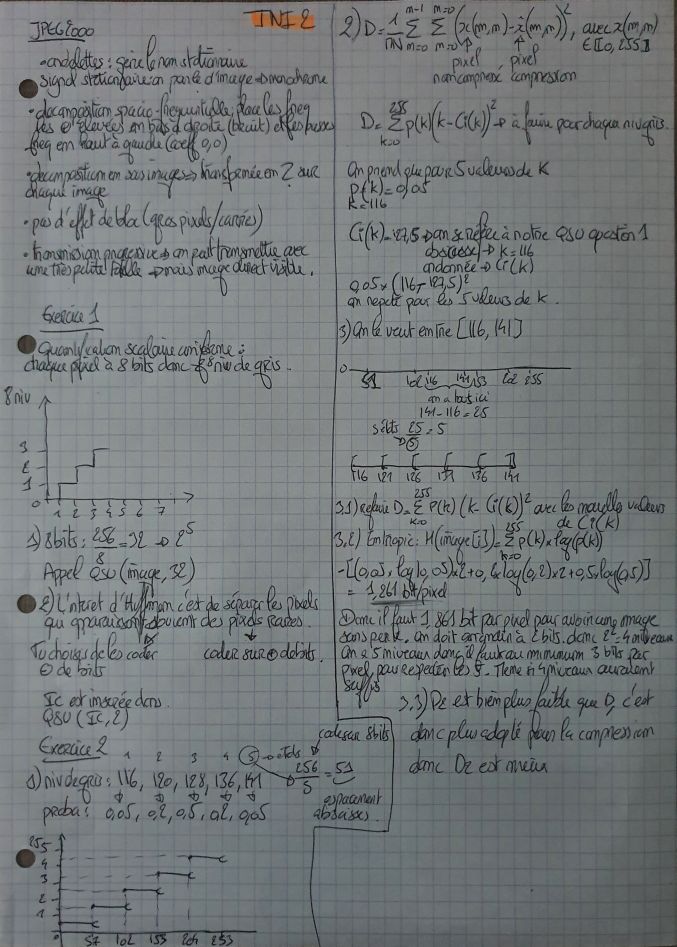 TNI 2
JPEG2000
• ondelettes : gère le non stationnaire
signal stationnaire on parle d'image → monochrome
• decomposition spacio-frequentielle; place les freq
les ⊕ élevées en bas à droite (bruit) et les basses
freq en haut à gauche (coeff 0,0)
• decomposition en sous images → transformée en Z sur
chaque image
• pas d'effet de bloc (gros pixels/carrés)
• transmission progressive → on peut transmettre avec
une très petite → mais image direct visible.
Exercice 1
Quantification scalaire uniforme :
chaque pixel à 8 bits donc 8 niv de gris.
8 niv
3
2
1
0
1 2 3 4 5 6 7
1) 8 bits : 256/8 = 32 → 2^5
Appel QSU (image, 32)
2) L'interet d'Huffman c'est de séparer les pixels
qui apparaissent souvent des pixels rares.
Tu choisis de les coder
⊖ de bits
coder sur ⊕ de bits.
Ic est inserée dans
QSU (Ic, 2)
Exercice 2
1 2 3 4 5 → etats
coder sur 8 bits
1) niv de gris : 116, 120, 128, 136, 141
256/5 = 51
proba : 0,05, 0,2, 0,5, 0,2, 0,05
espacement
abscisses.
255
4
3
2
1
0
51 102 153 204 253
2) D = 1/MN Σ Σ (x(m,n) - x̂(m,n))², avec x(m,n)
m-1 m=0
m=0 m=0
∈ [0, 255]
pixel pixel
non compressé compression
D = Σ p(k)(k - Ci(k))² → à faire pour chaque niv gris.
255
k=0
On prend que pour 5 valeurs de K
P(k) = 0,05
k = 116
Ci(k) = 127,5 → on se réfère à notre QSU question 1
abscisse → k = 116
ordonnée → Ci(k)
0,05 × (116 - 127,5)²
on repete pour les 5 valeurs de k.
3) On le veut entre [116, 141]
0
51 102 116 141 153 202 255
on a bosse ici
141 - 116 = 25
5 etats 25/5 = 5
→ 5
116 121 126 131 136 141
3.1) refaire D = Σ P(k)(k - Ci(k))² avec les nouvelles valeurs
255
k=0
de Ci(k)
3.2) Entropie : H(image[i]) = Σ p(k) × log(p(k)
255
k=0
-[(0,05 × log(0,05) × 2 + 0,2 × log(0,2) × 2 + 0,5 × log(0,5)]
= 1,861 bit/pixel
Donc il faut 1,861 bit par pixel pour avoir une image
sans perte, on doit arrondir à 2 bits. donc 2² = 4 niveaux
On a 5 niveaux donc il faut au minimum 3 bits par
pixel pour respecter les 5. Meme si 4 niveaux auraient
suffis
3.3) D2 est bien plus faible que D, c'est
donc plus adapté pour la compression
donc D2 est mieux